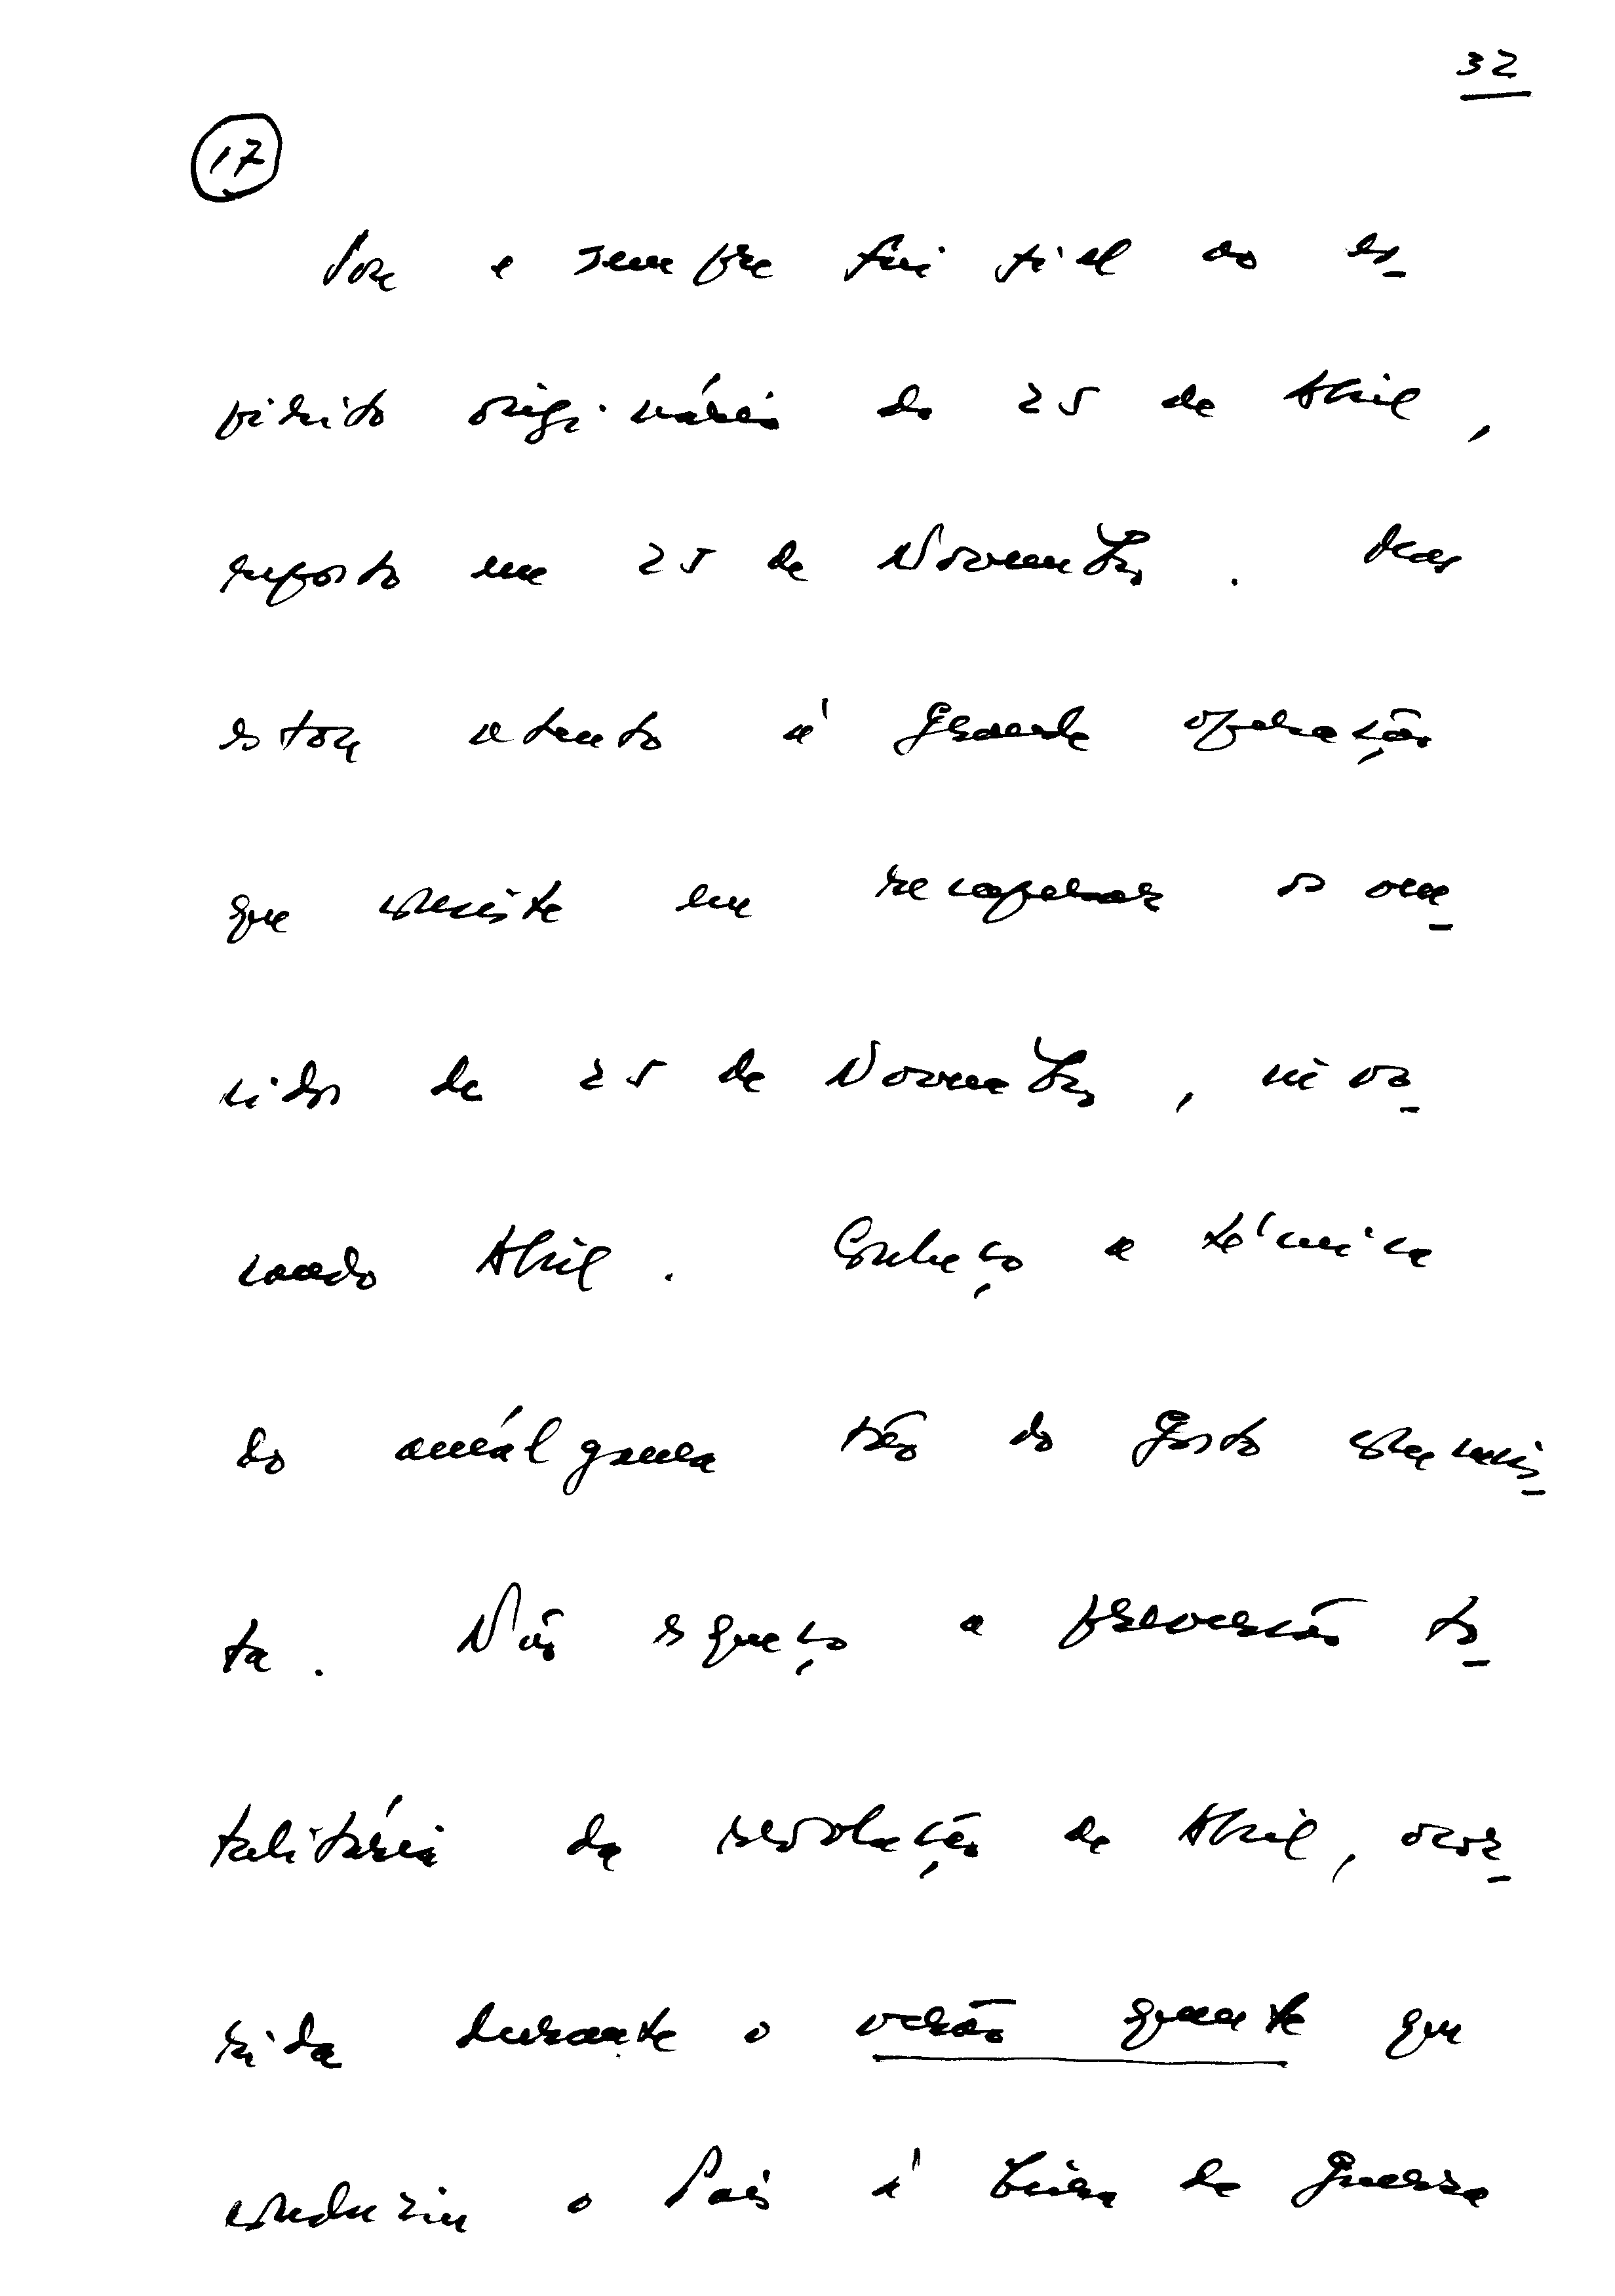 32
17
Sou e sempre fui fiel ao es-
pírito originário do 25 de Abril,
reposto em 25 de Novembro. Mas
estou atento à grande operação
que consiste em recuperar os ven-
cidos de 25 de Novembro, invo-
cando Abril. Conheço a técnica
do amálgama tão do gosto comunis-
ta. Não esqueço a perversão to-
talitária da revolução de Abril, ocor-
rida durante o verão quente que
conduziu o País à beira da guerra